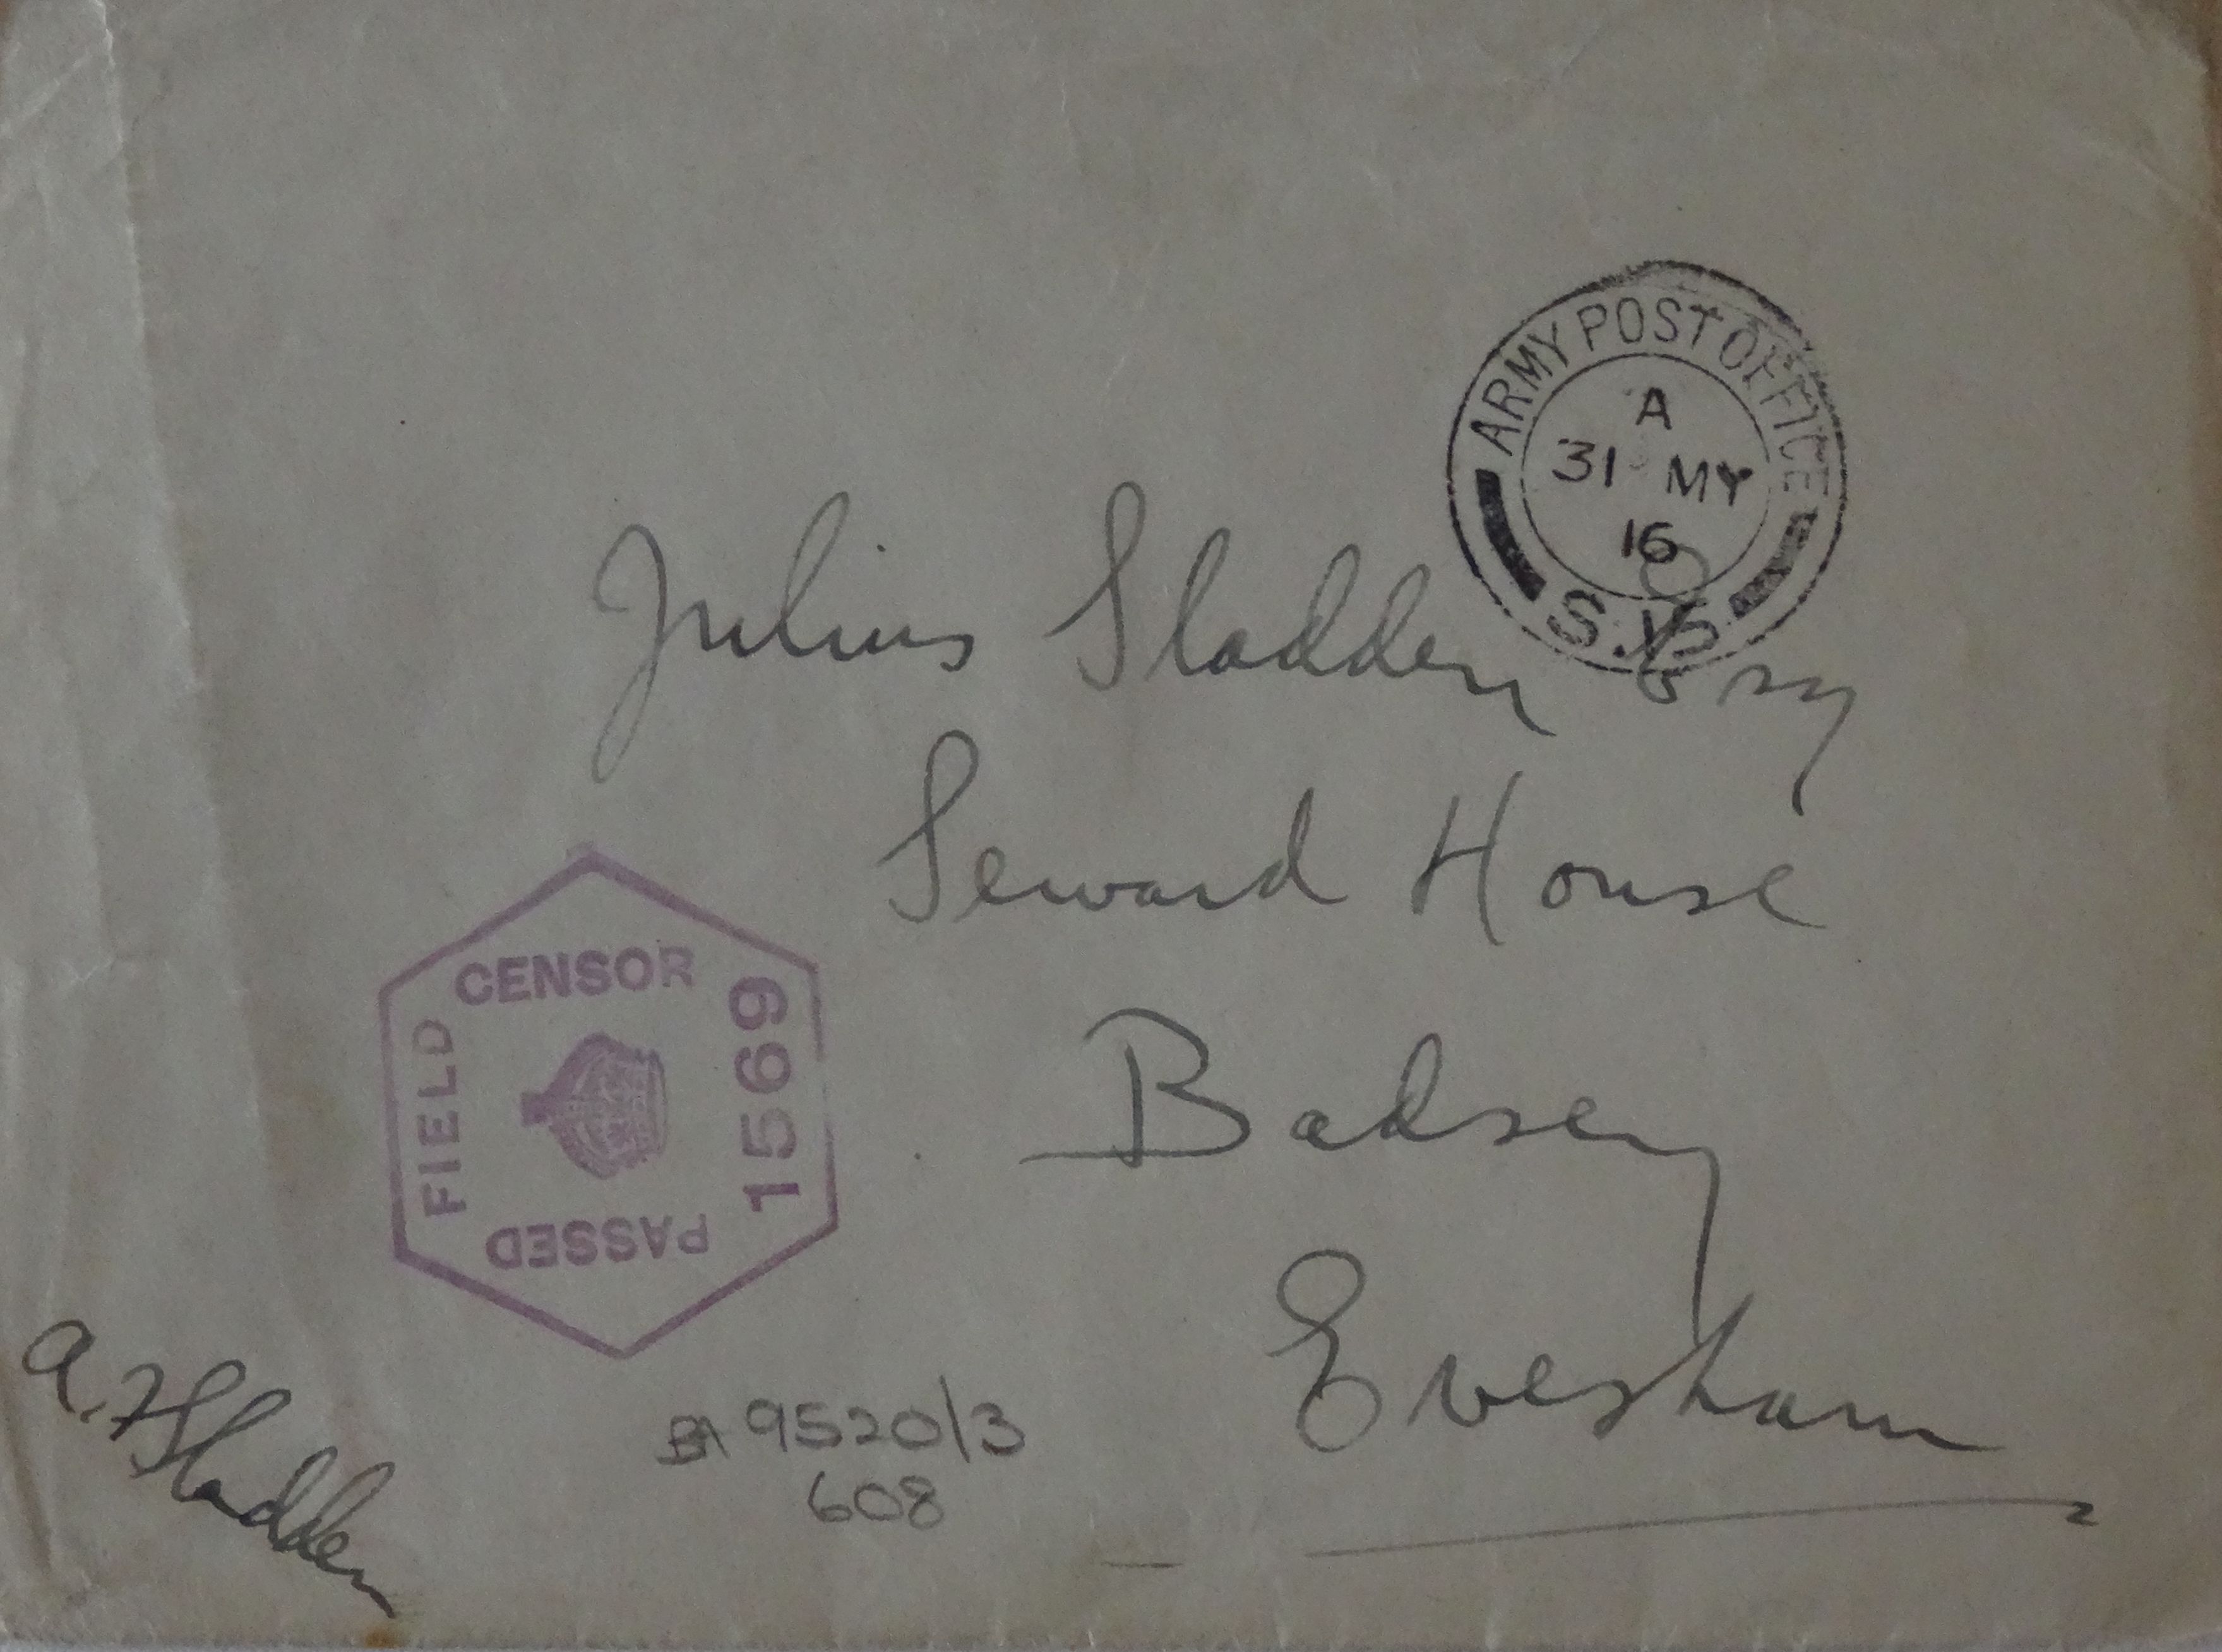 ARMY POST OFFICE
A
31 MY
16
Julius Sladden Esq
Seward House
Badsey
Evesham
FIELD
CENSOR
1569
PASSED
A. F Sladden
BA 9520/3
608